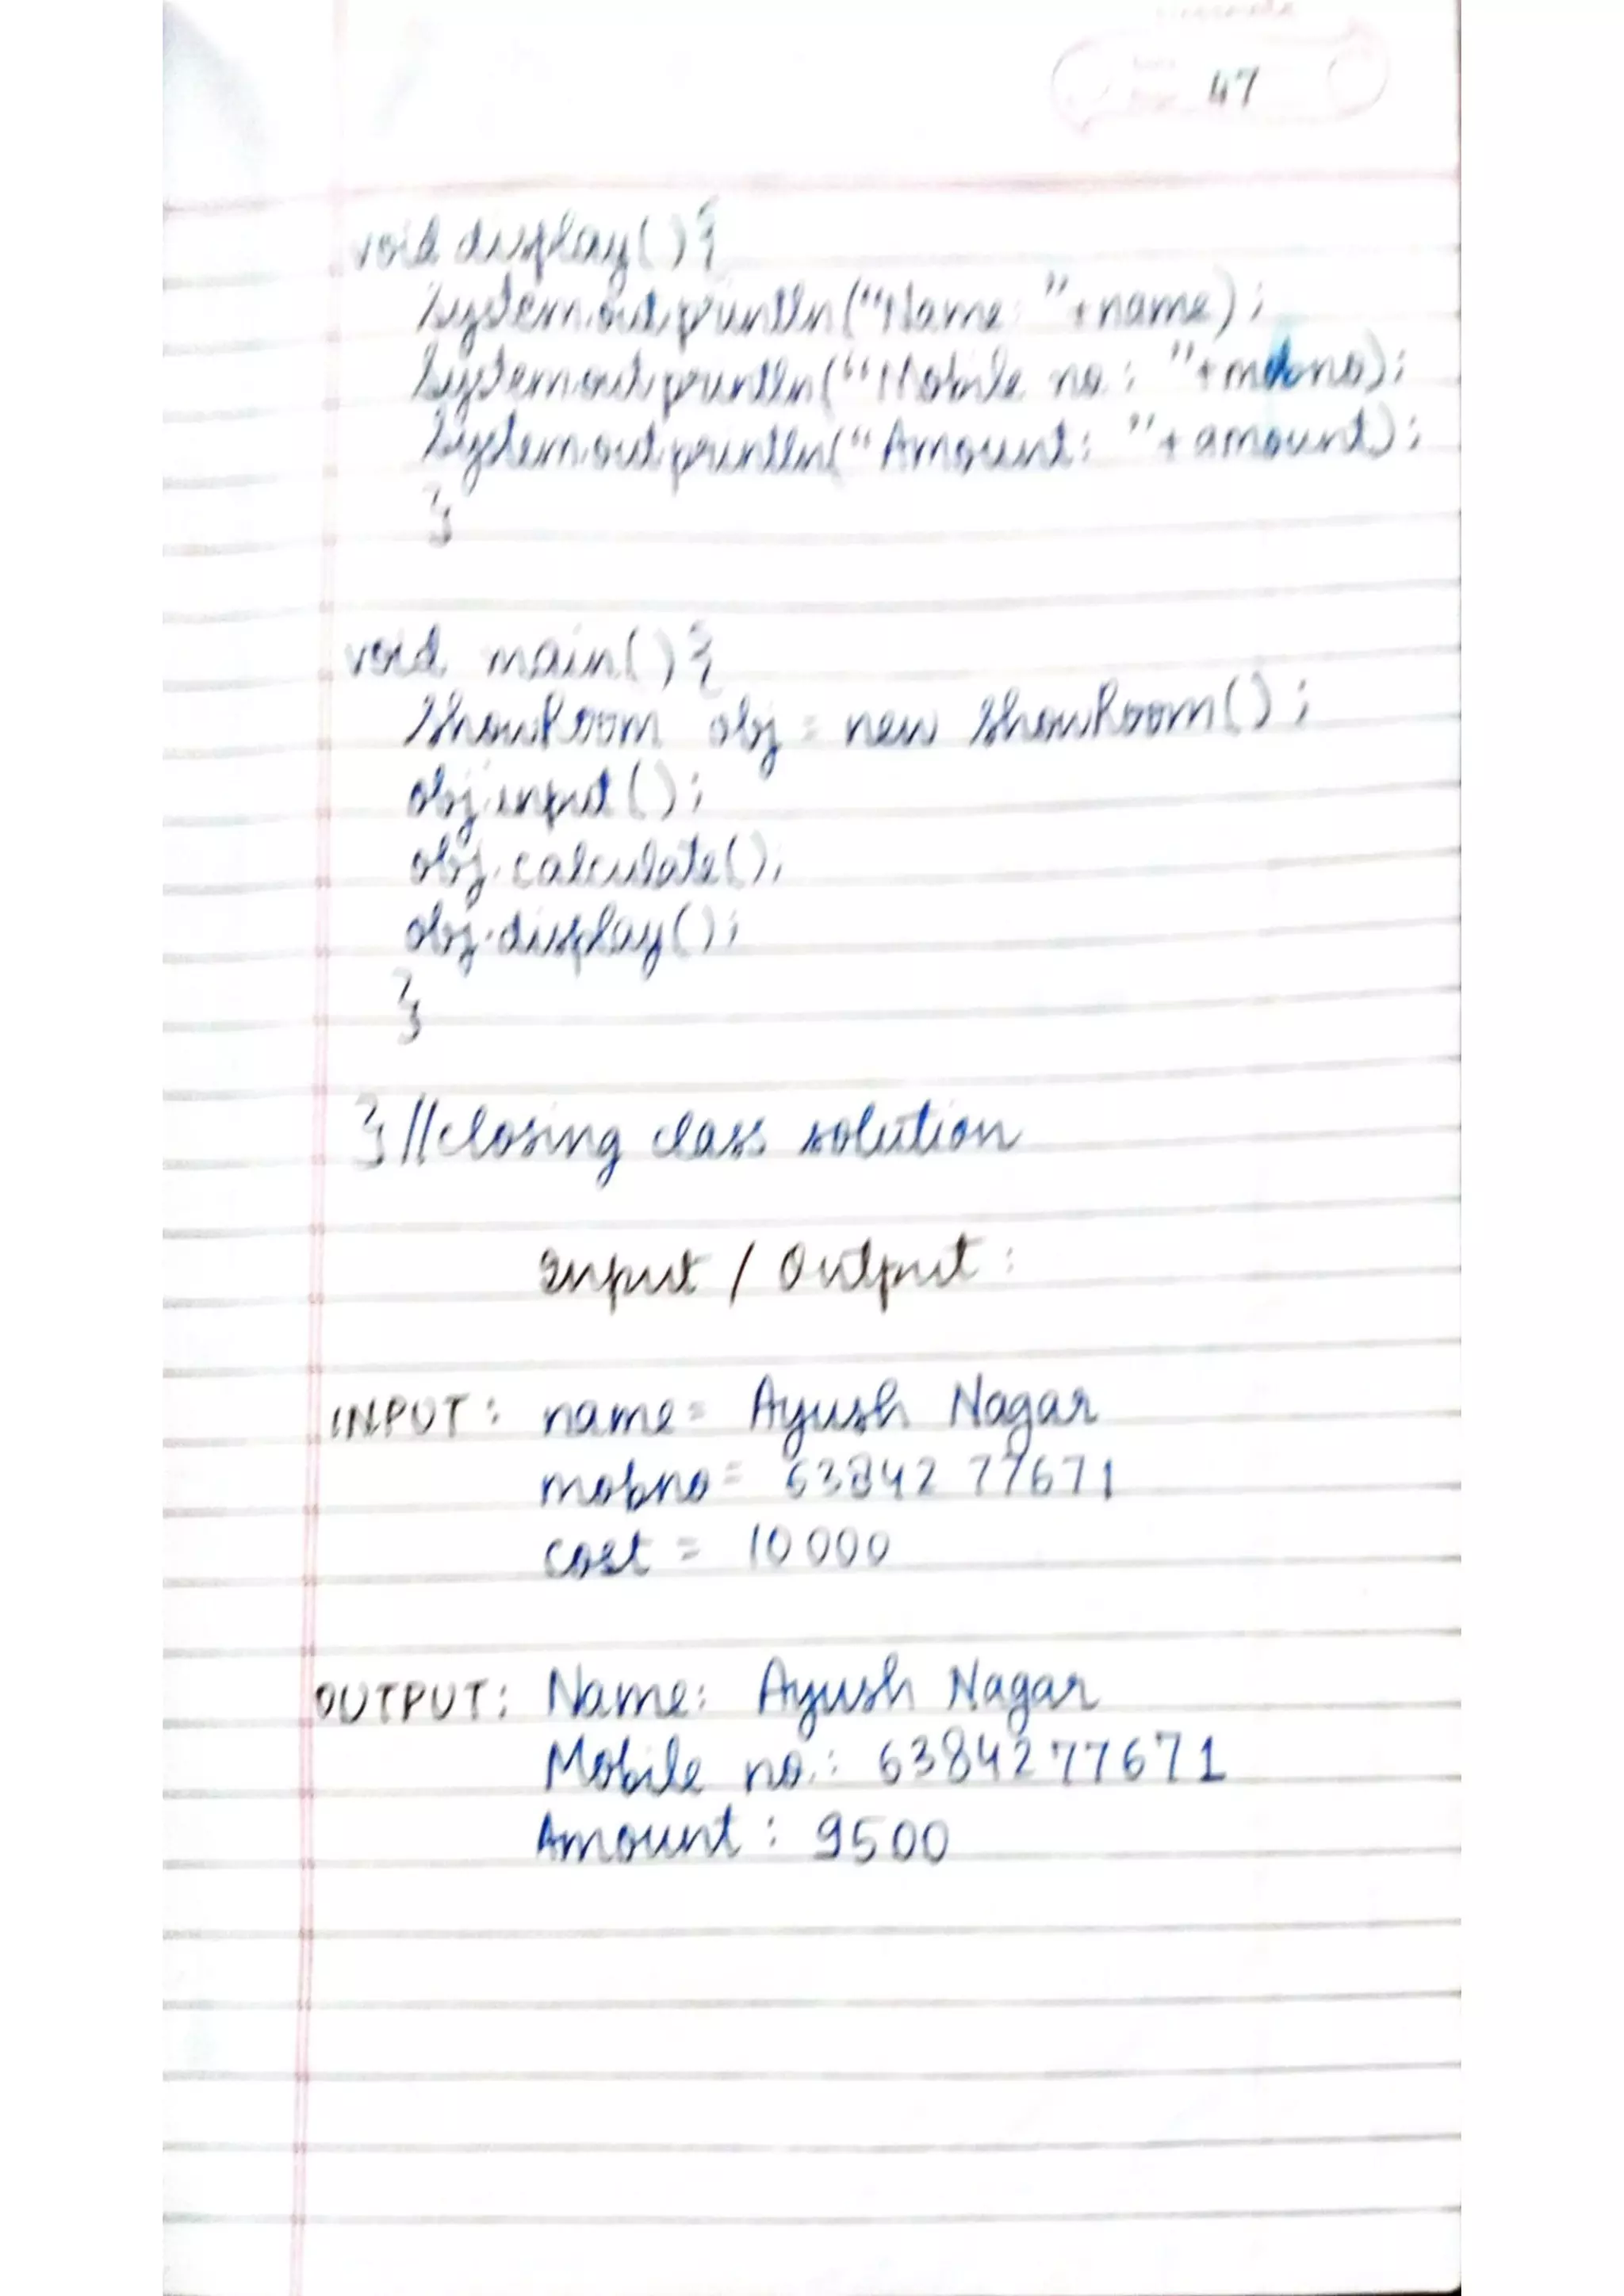 47
void display(){
System.out.println("Name: "+name);
System.out.println("Mobile no.: "+mobno);
System.out.println("Amount: "+amount);
}
void main(){
ShowRoom obj = new ShowRoom();
obj.input();
obj.calculate();
obj.display();
}
} //closing class solution
Input / Output:
INPUT: name= Ayush Nagar
mobno= 63842 77671
cost = 10000
OUTPUT: Name: Ayush Nagar
Mobile no.: 6384277671
Amount: 9500